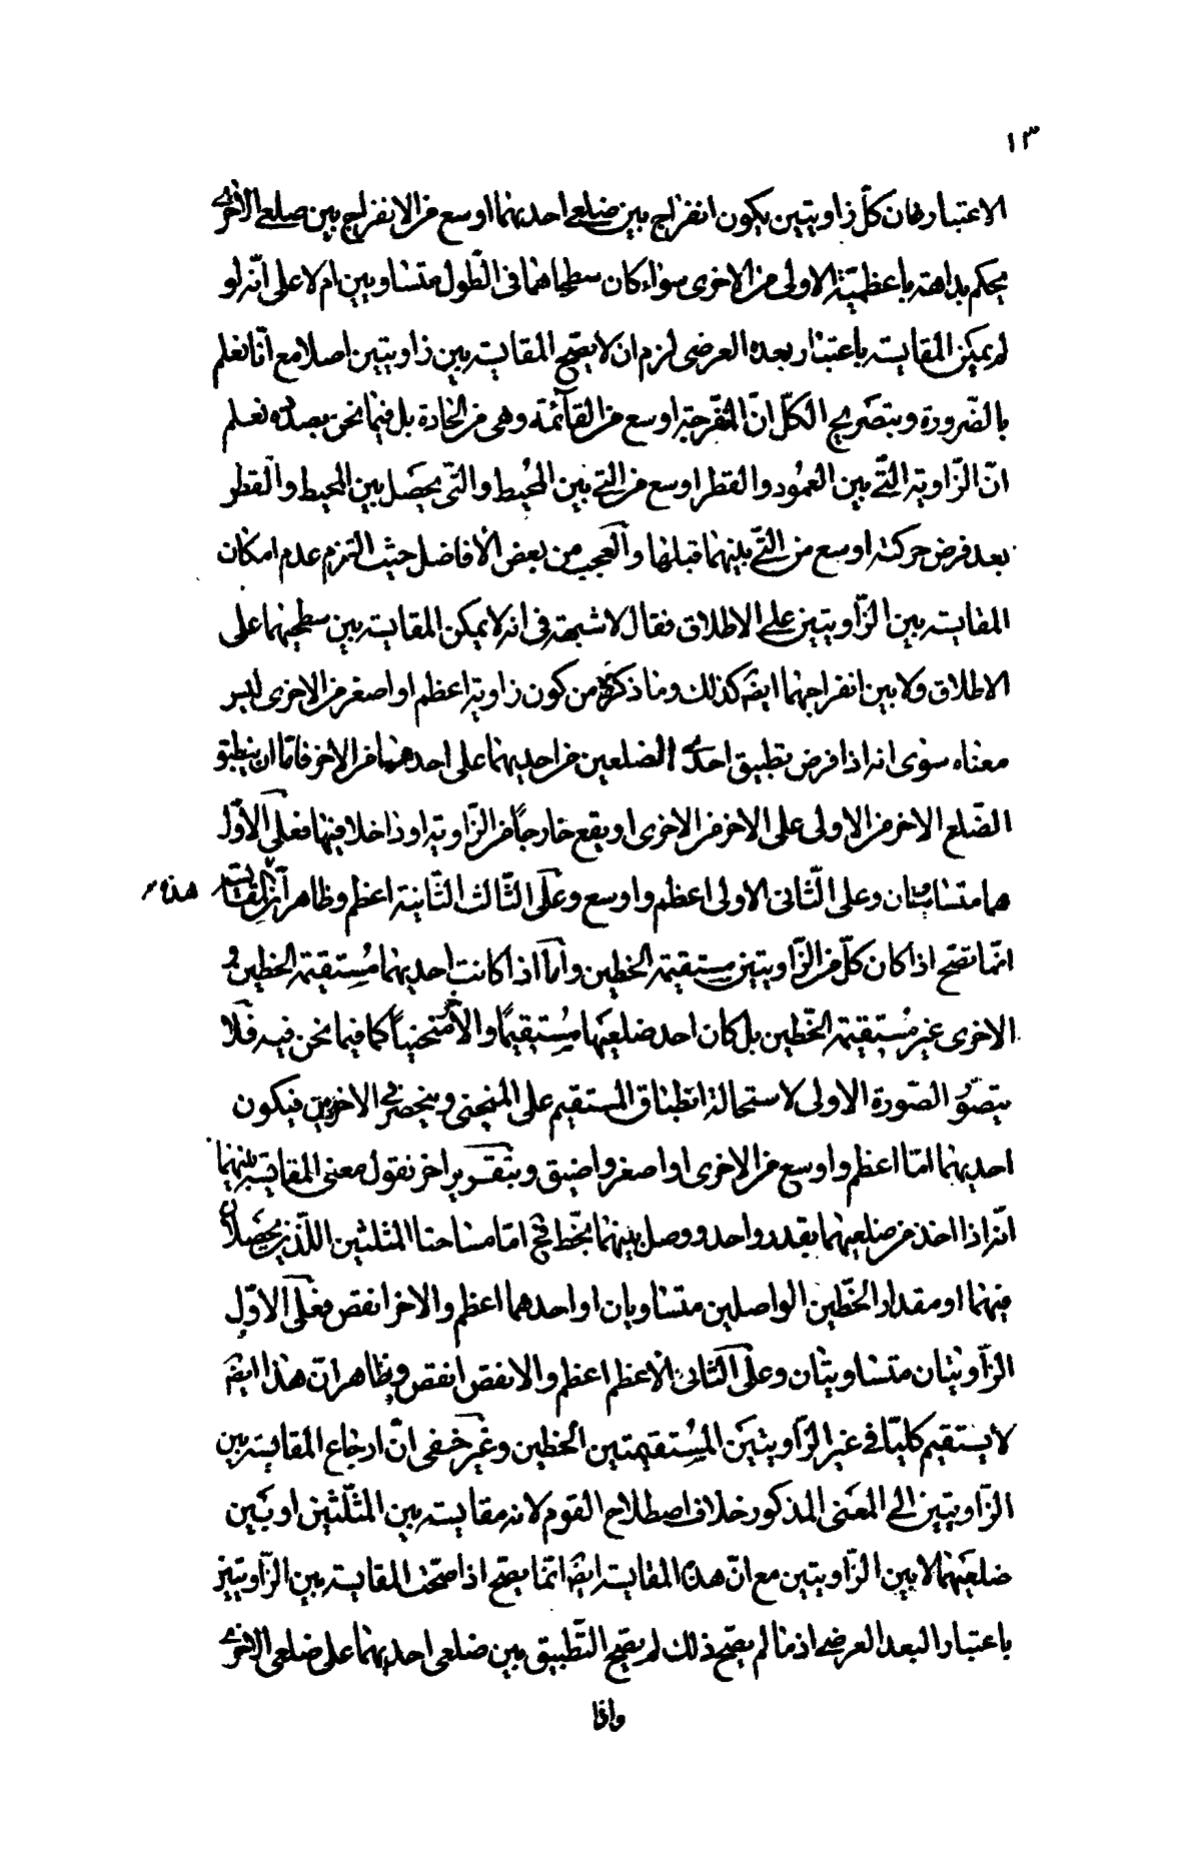 ١٣
الاعتبار فان كلّ زاويتين يكون انفراج بين ضلعى احديهما اوسع من الانفراج بين ضلعى الاخرى
يحكم بداهة باعظميّة الاولى من الاخرى سواء كان سطحاهما فى الطّول متساويين ام لا على انّه لو
لم يمكن المقايسة باعتبار بعده العرضى لزم ان لا يصّح المقايسة بين زاويتين اصلا مع انّا نعلم
بالضّرورة وبتصريح الكلّ انّ المنفرجة اوسع من القآئمة وهى من الحادة بل فيما نحن بصدده نعلم
انّ الزّاوية الّتى بين العمود والقطر اوسع من الّتى بين المحيط والّتى يحصل بين المحيط والقطر
بعد فرض حركته اوسع من الّتى بينهما قبلها والعجب من بعض الافاضل حيث التزم عدم امكان
المقايسة بين الزّاويتين على الاطلاق فقال لا شبهة فى انه لا يمكن المقايسة بين سطحيهما على
الاطلاق ولا بين انفراجهما ايضه كذلك وما ذكروه من كون زاوية اعظم او اصغر من الاخرى ليس
معناه سوى انه اذا فرض تطبيق احدى الضلعين من احديهما على احدهما من الاخر فامّا ان ينطبق
الضّلع الاخر من الاولى على الاخر من الاخرى او يقع خارجاً من الزّاوية او داخلا فيها فعلى الاوّل
هما متساويتان وعلى الثّانى الاولى اعظم واوسع وعلى الثّالث الثّانية اعظم وظاهر انّ المقايسة هذه
انّما تصّح اذا كان كلّ من الزّاويتين مستقيمة الخطين وامّا اذا كانت احديهما مستقيمة الخطين و
الاخرى غير مستقيمة الخّطين بل كان احد ضلعيها مستقيمًا والاخر منحنياً كما فيما نحن فيه فلا
يتصوّر الصّورة الاولى لاستحالة انطباق المستقيم على المنحنى وينحصر فى الاخريين فيكون
احديهما امّا اعظم واوسع من الاخرى او اصغر واضيق وبتقرير اخر نقول معنى المقايسة بينهما
انّه اذا اخذ من ضلعيهما بقدر واحد ووصل بينهما بخّط فح امّا مساحتا المثلثين اللّذين يحصلان
منهما او مقدار الخّطين الواصلين متساويان او احدهما اعظم والاخر انقص فعلى الاوّل
الزّاويتان متساويتان وعلى الثّانى الاعظم اعظم والانقص انقص وظاهر انّ هذا ايضه
لا يستقيم كليّا فى غير الزّاويتين المستقيمتين الخطين وغير خفى انّ ارجاع المقايسة بين
الزّاويتين الى المعنى المذكور خلاف اصطلاح القوم لانه مقايسة بين المثلّثين او بين
ضلعيهما لا بين الزّاويتين مع انّ هذه المقايسة ايضه انّما يصّح اذا صحّت المقايسة بين الزّاويتين
باعتبار البعد العرضى اذ ما لم يصّح ذلك لم يصّح التّطبيق بين ضلعى احديهما على ضلعى الاخرى
واذا